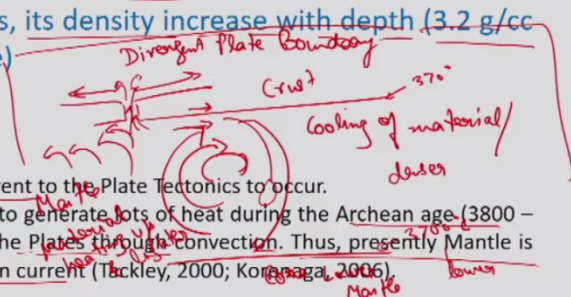 s, its density increase with depth (3.2 g/cc
Divergent Plate Boundary
Crust
370°
Cooling of material/
denser
ent to the Plate Tectonics to occur.
Mantle
to generate lots of heat during the Archean age (3800 –
material
3700°C
he Plates through convection. Thus, presently Mantle is
heating up
lighter
n current (Tackley, 2000; Koranaga, 2006).
lower
Mantle